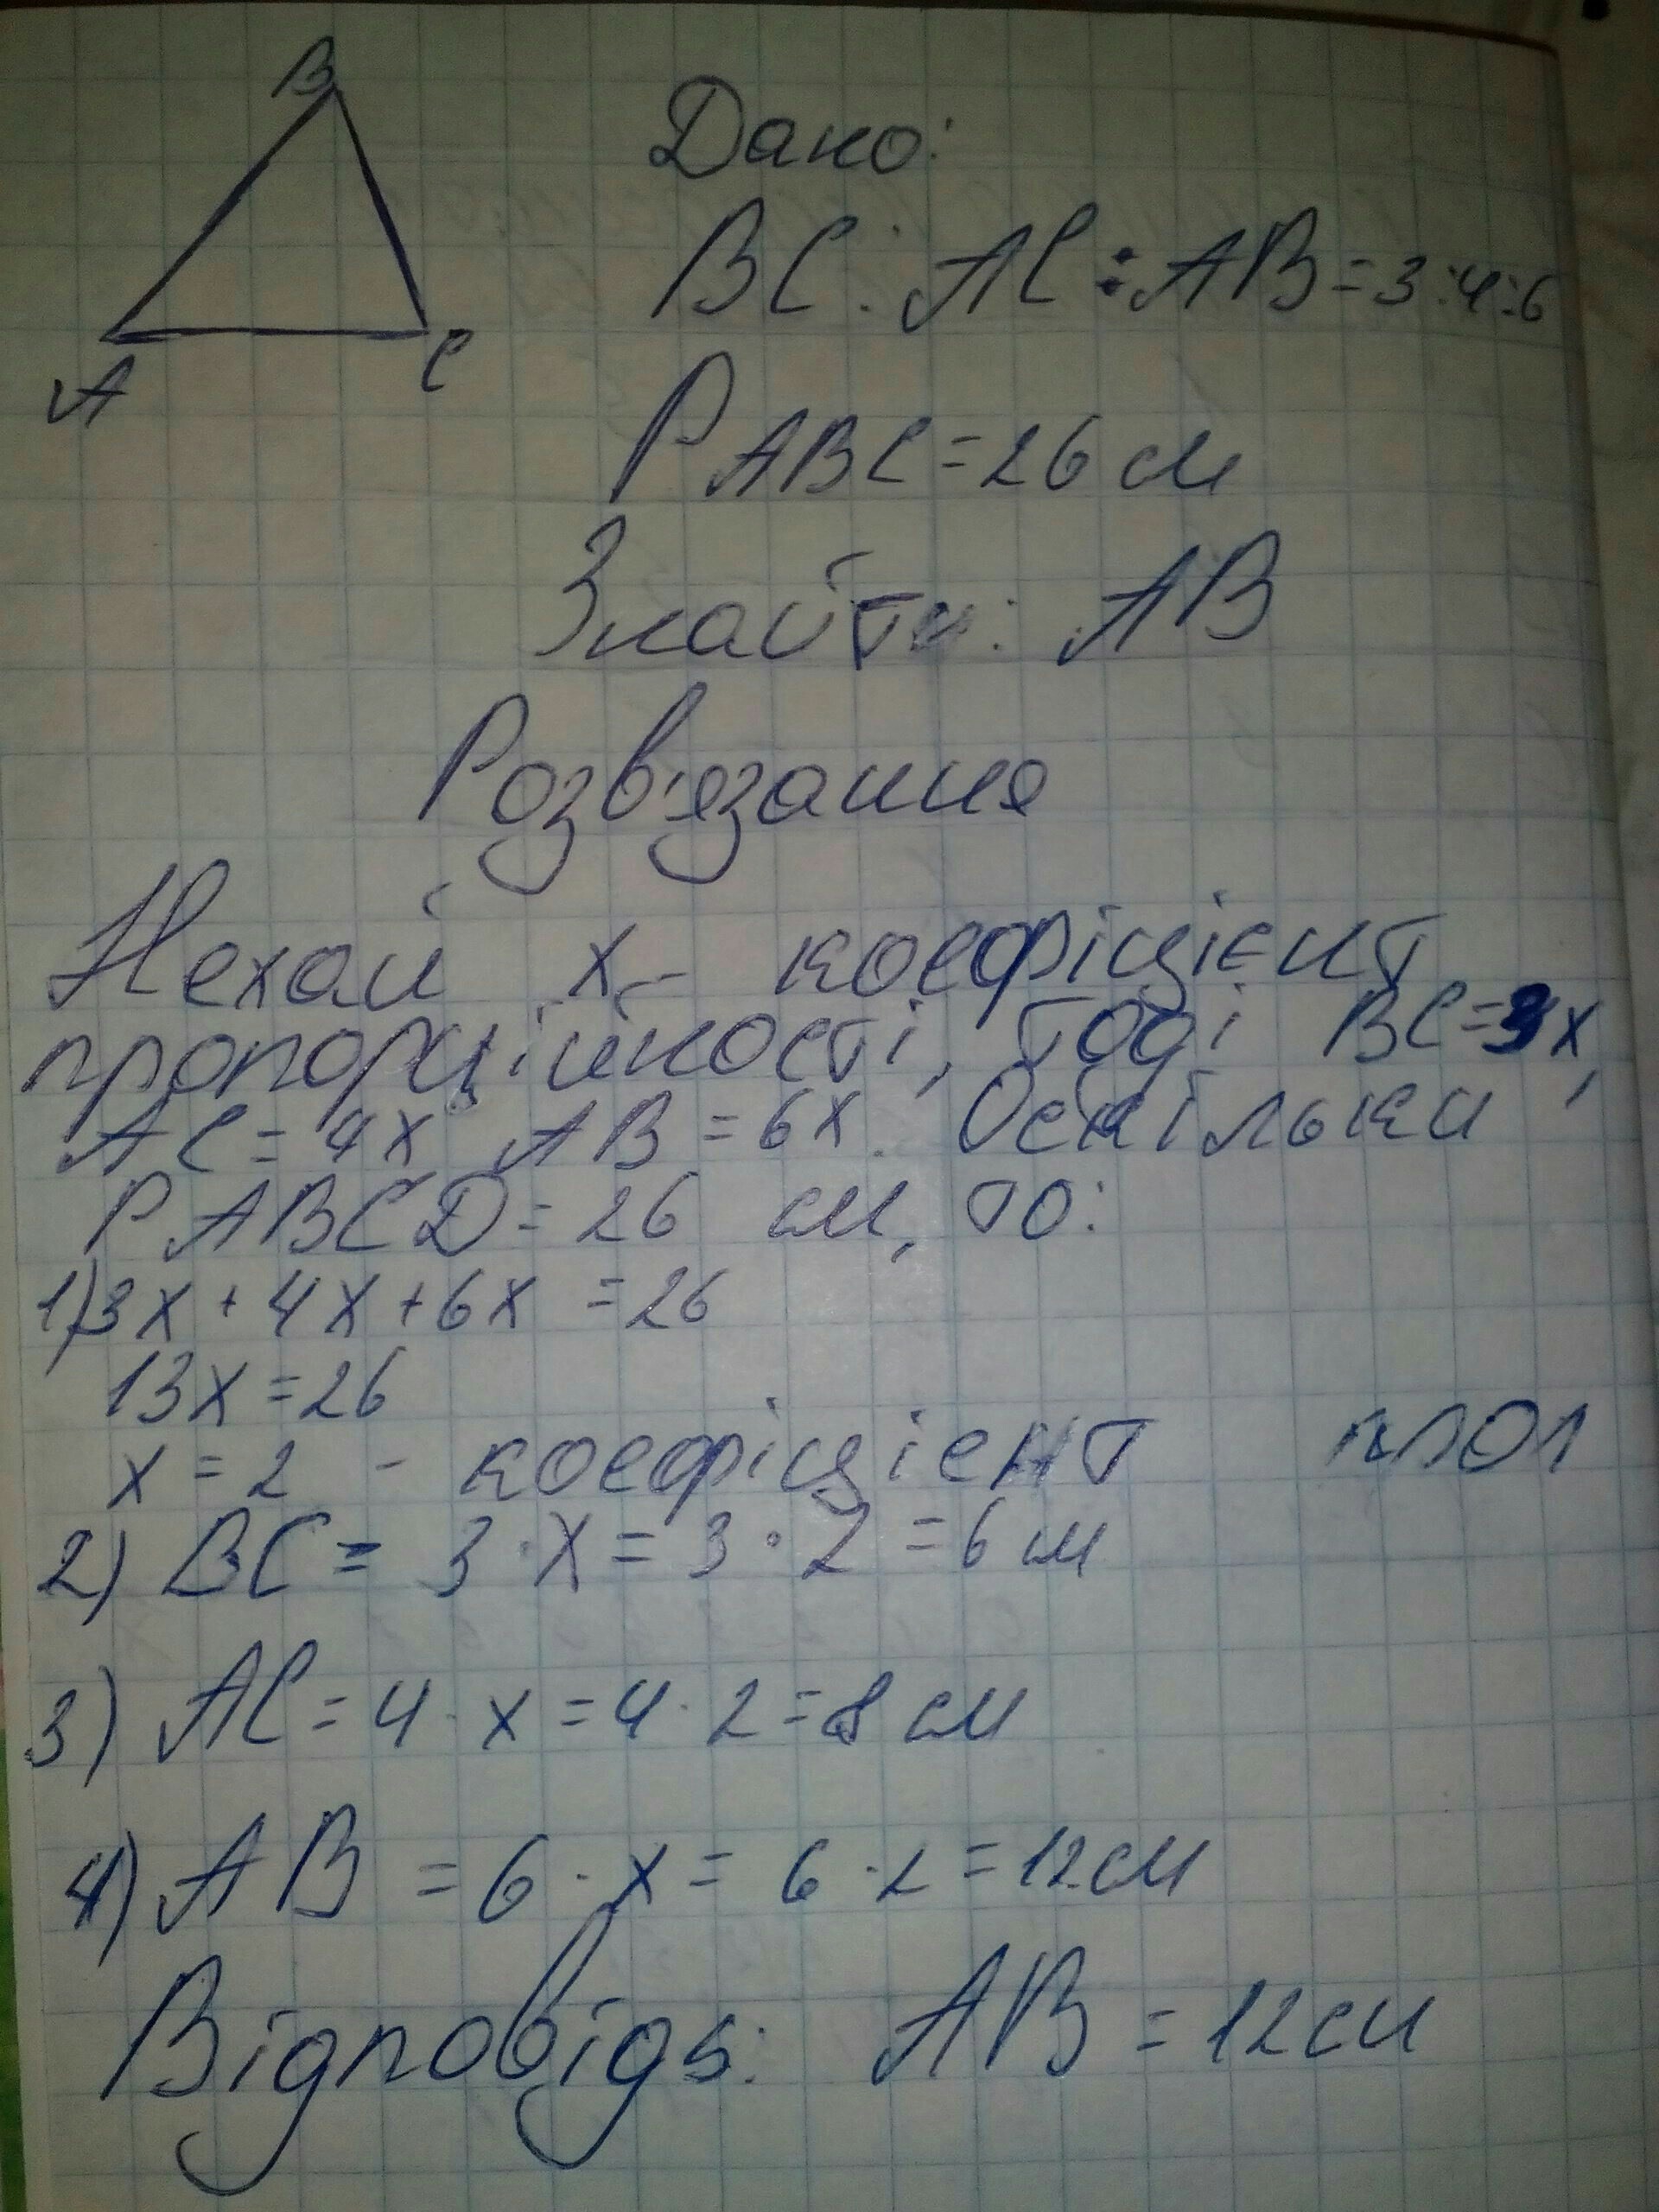 B
A
C
Дано:
BC : AC : AB = 3:4:6
P ABC = 26 см
Знайти: AB
Розв'язання
Нехай x - коефіцієнт
пропорційності, тоді BC = 3x,
AC = 4x AB = 6x. Оскільки
P ABCD = 26 см, то:
1) 3x + 4x + 6x = 26
13x = 26
x = 2 - коефіцієнт
2) BC = 3 · x = 3 · 2 = 6 см
3) AC = 4 · x = 4 · 2 = 8 см
4) AB = 6 · x = 6 · 2 = 12 см
Відповідь: AB = 12 см